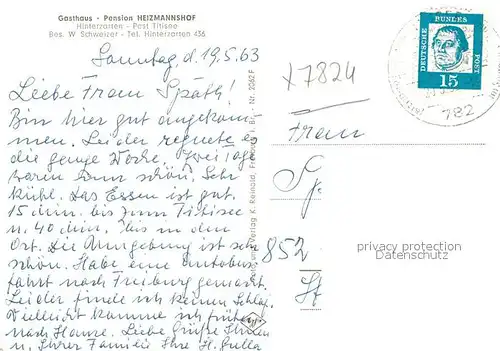 Gasthaus - Pension HEIZMANNSHOF
Hinterzarten - Post Titisee
Bes. W. Schweizer - Tel. Hinterzarten 436
Sonntag d. 19.5.63
Liebe Frau Späth!
Bin hier gut angekom-
men. Leider regnete es
die ganze Woche. Zwei Tage
waren schön. Sehr
kühl. Das Essen ist gut.
15 min. bis zum Titisee
u. 40 min. bis in den
Ort. Die Umgebung ist sehr
schön. Habe eine Autobus
fahrt nach Freiburg gemacht.
Leider finde ich keinen Schlaf.
Vielleicht komme ich früher
nach Hause. Liebe Grüße Ihnen
u. Ihrer Familie Ihre H. Gulla
Verlag K. Reinold, Freiburg i. Br. - Nr. 2062 F
x7824
Frau
852
DEUTSCHE BUNDESPOST
15
782
privacy protection
Datenschutz